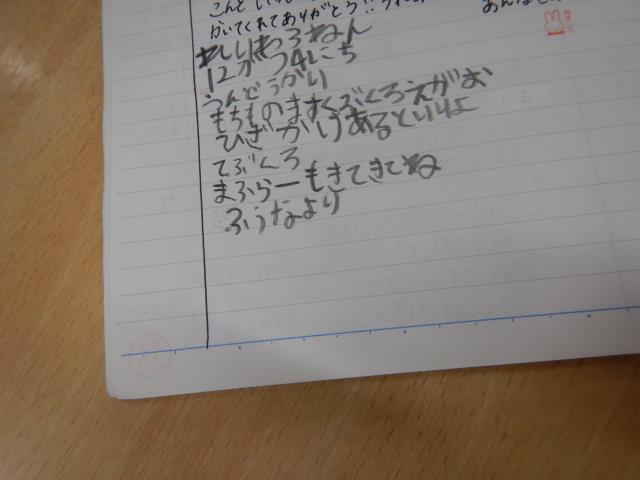 こんど
かいてくれてありがとう!!
れいわろねん
12がつ4にち
うんどうかい
もちものますくぶくろえがお
ひざかけあるといいよ
てぶくろ
まふらーもきてきてね
ふうなより